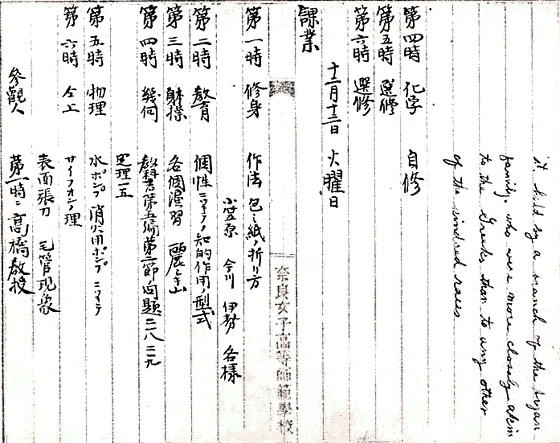 it held by a branch of the Aryan
family, who were more closely akin
to the Greeks than to any other
of the kindred races.
第四時 化学 自修
第五時 選修
第六時 選修
十二月十三日 火曜日
課業
奈良女子高等師範學校
第一時 修身 作法 包ミ紙ノ折リ方
小笠原 今川 伊勢 各様
第二時 教育 個性ニツイテノ知的作用ノ型式
第三時 躰操 各個演習
第四時 幾何 教科書第五編第二節問題二八二九
定理一五
第五時 物理 水ポンプ 消火用ポンプ ニツイテ
第六時 仝上 サイフォンノ理
表面張力 毛管現象
參觀人 第一時ニ高橋教授